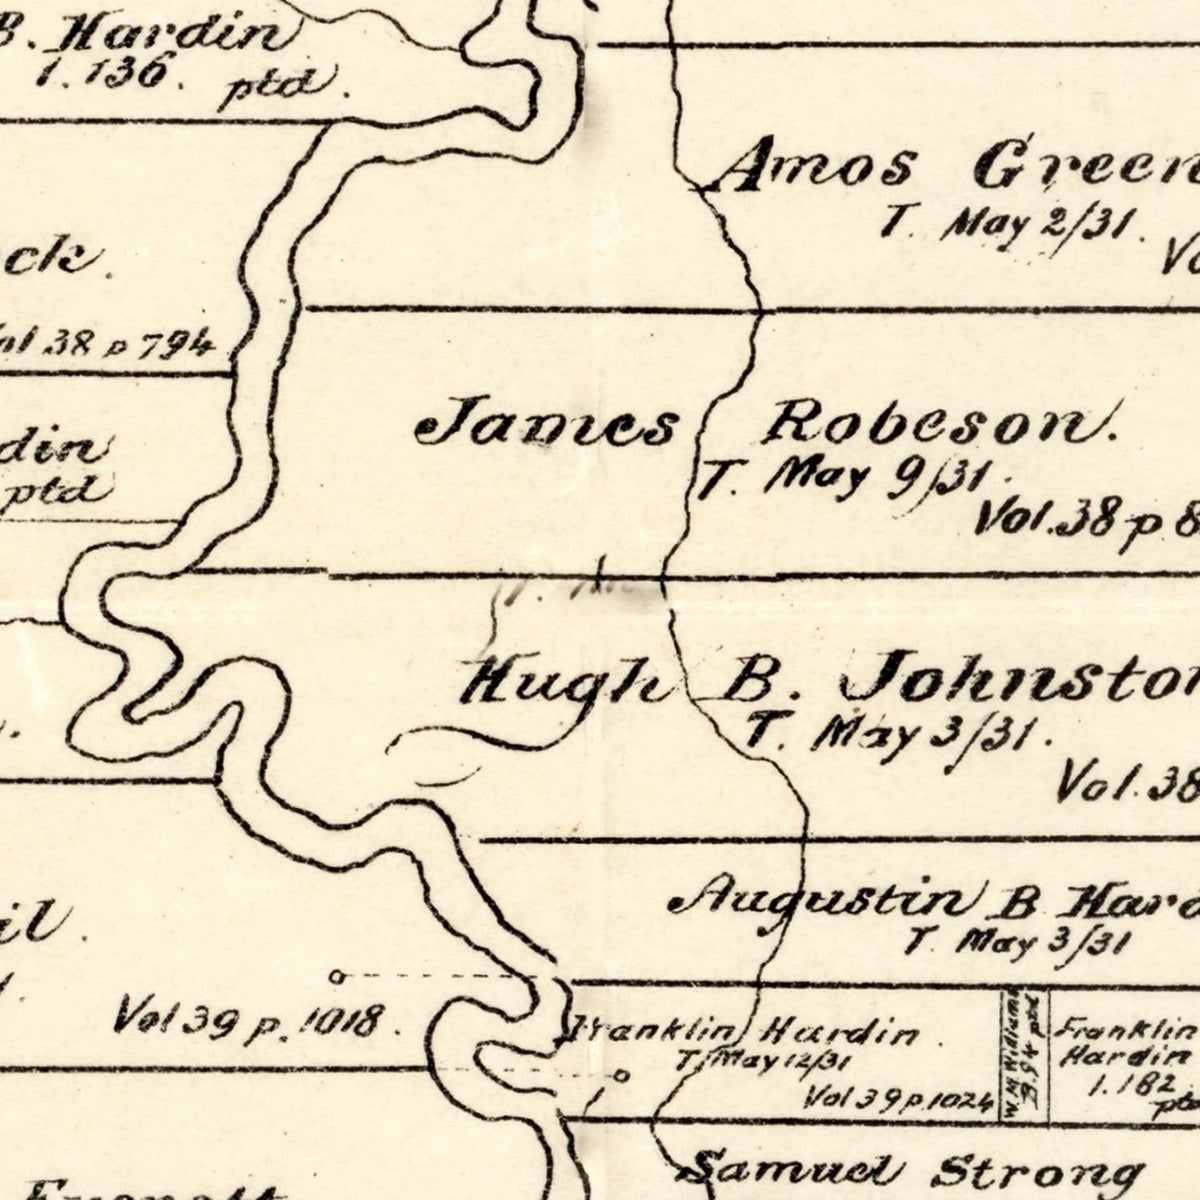 B. Hardin
1.136. ptd.
Amos Green
T. May 2/31.
Vo
ck.
Vol 38 p 794
James Robeson.
T. May 9/31.
Vol. 38 p 8
din
ptd
Hugh B. Johnston
T. May 3/31.
Vol. 38
Augustin B Hard
T. May 3/31
il.
Vol 39 p. 1018.
Franklin Hardin.
T. May 12/31
Vol 39 p. 1024
W. M. Williams
Franklin
Hardin
1.182
ptd
Samuel Strong